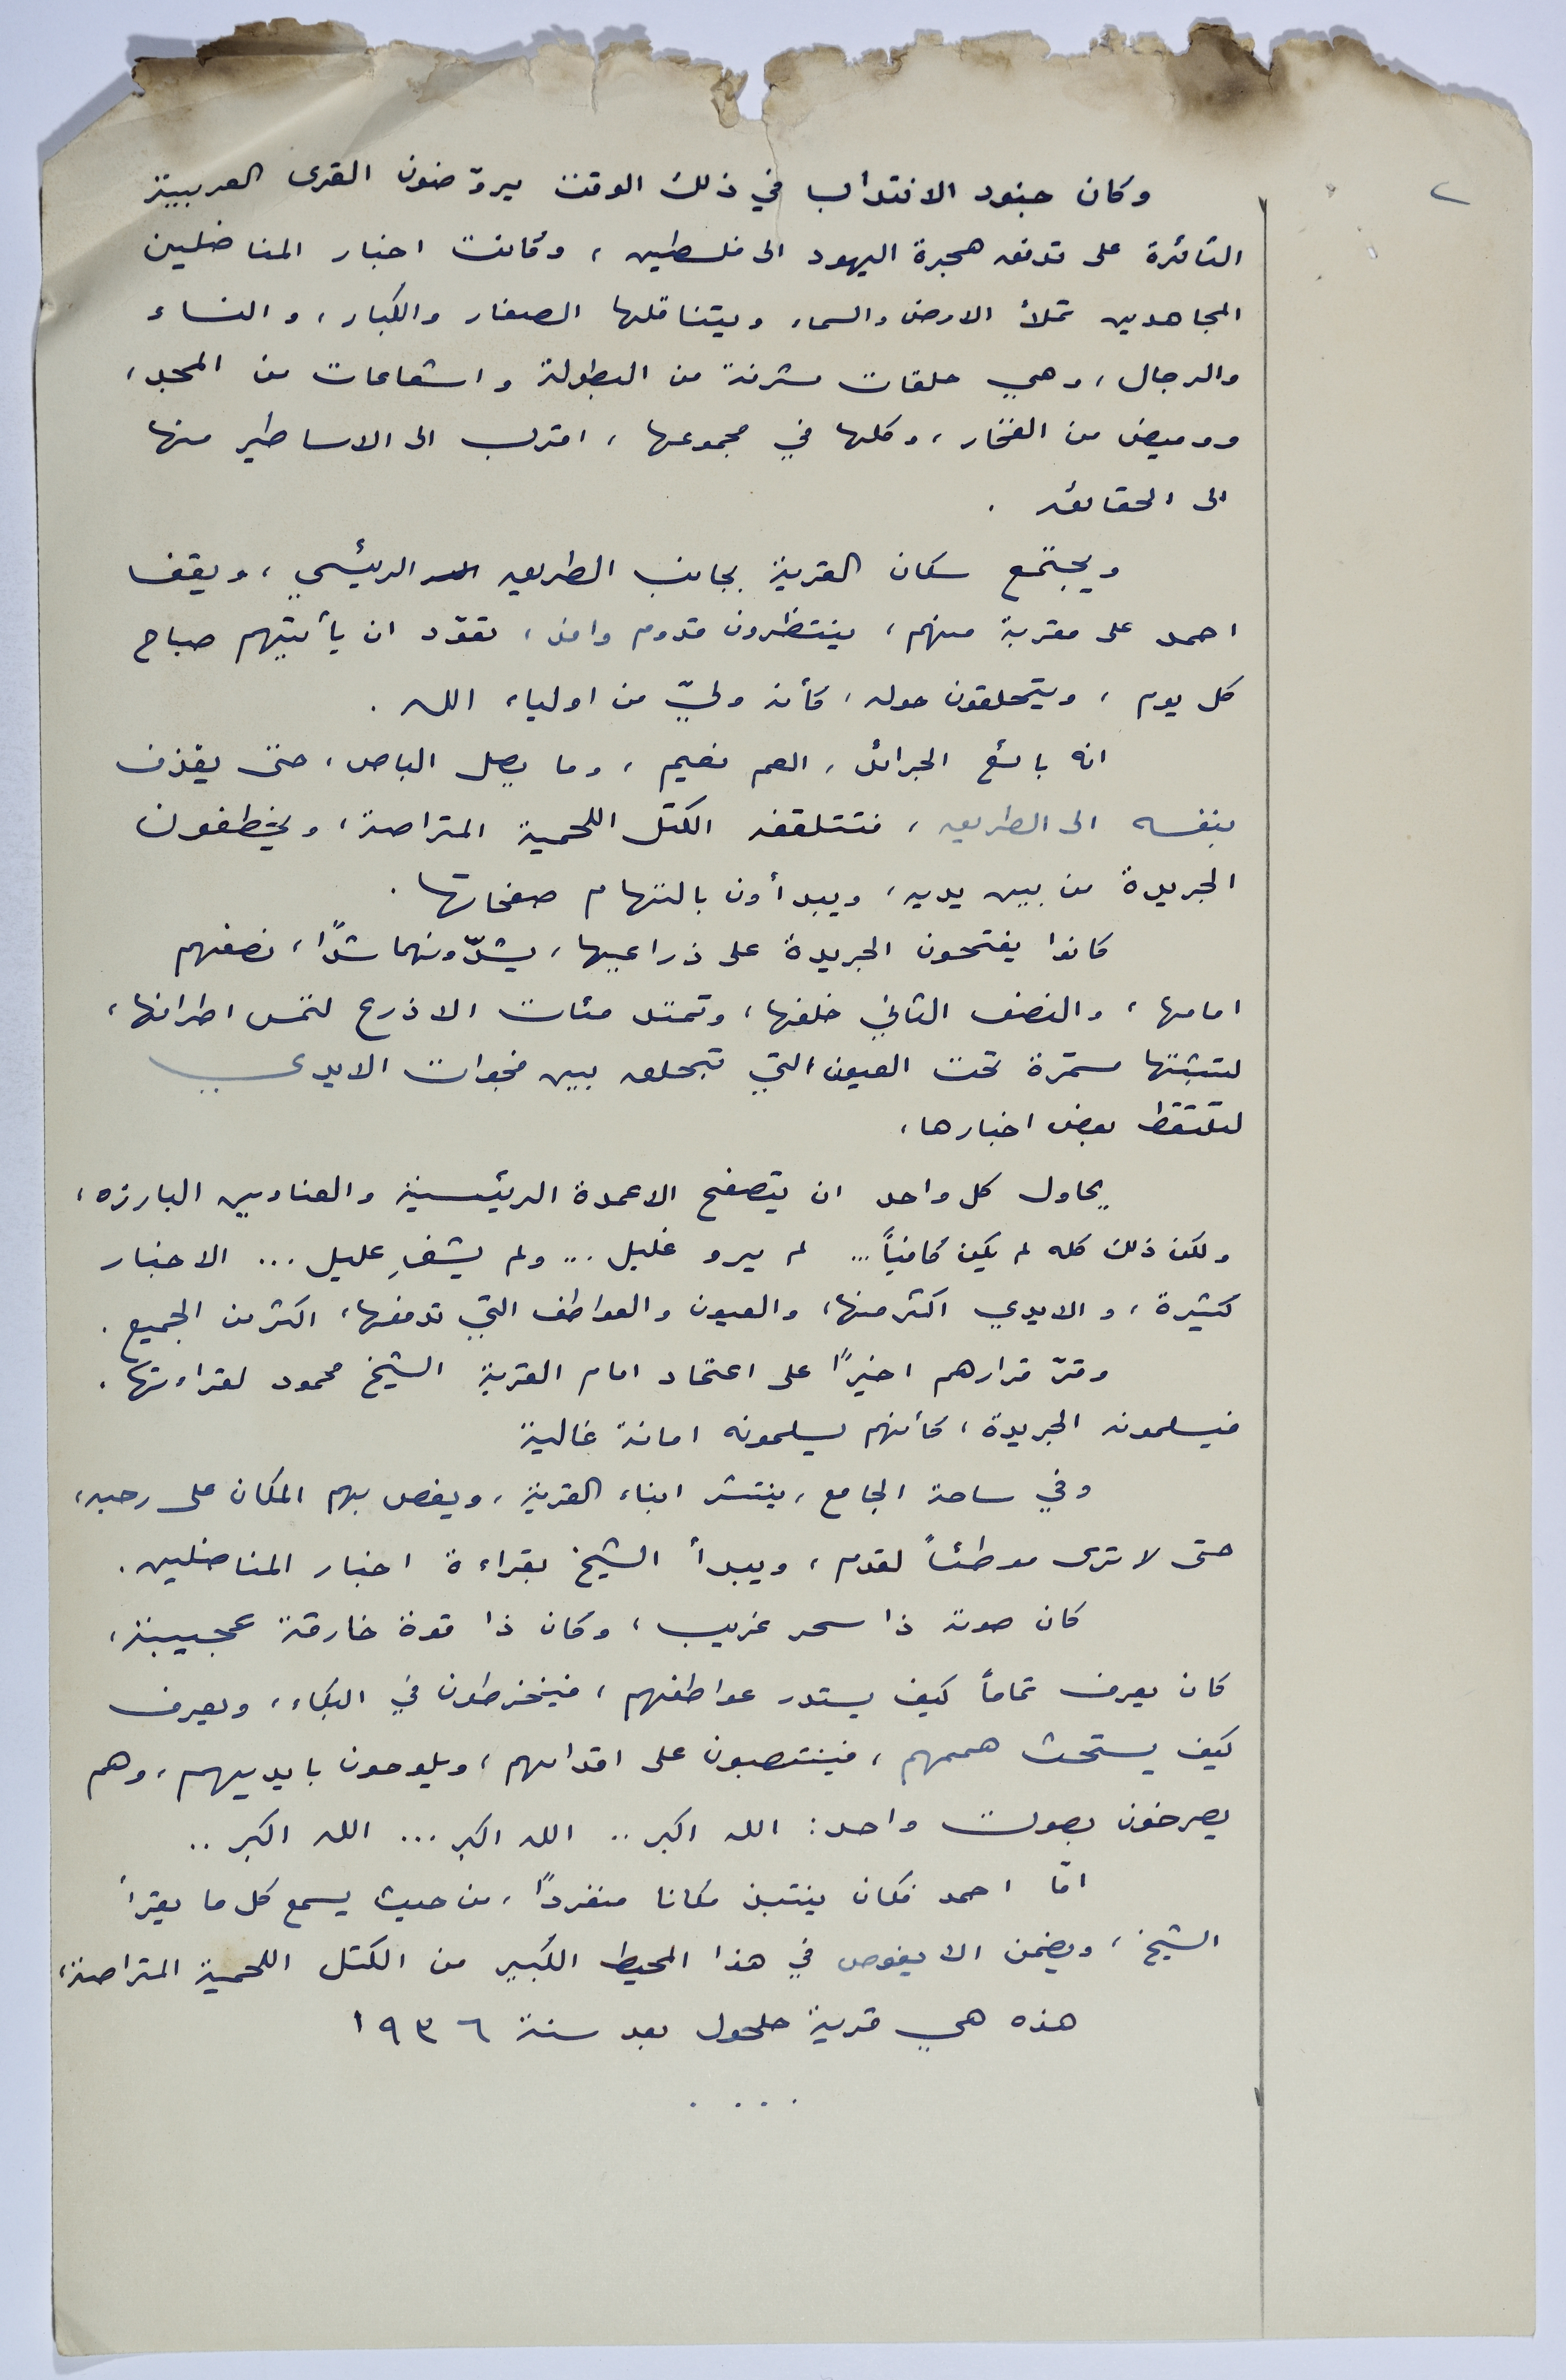 ٢
وكان جنود الانتداب في ذلك الوقت يروّضون القرى العربية
الثائرة على تدفق هجرة اليهود الى فلسطين ، وكانت اخبار المناضلين
المجاهدين تملأ الارض والسماء ويتناقلها الصغار والكبار ، والنساء
والرجال ، وهي حلقات مشرفة من البطولة واشعاعات من المجد ،
ووميض من الفخار ، وكلها في مجموعها ، اقرب الى الاساطير منها
الى الحقائق .
ويجتمع سكان القرية بجانب الطريق الرئيسي ، ويقف
احمد على مقربة منهم ، ينتظرون قدوم وافد ، تعوّد ان يأتيهم صباح
كل يوم ، ويتحلقون حوله ، كأنه وليّ من اولياء الله .
انه بائع الجرائد ، العم نعيم ، وما يصل الباص ، حتى يقذف
بنفسه الى الطريق ، فتتلقفه الكتل اللحمية المتراصة ، ويخطفون
الجريدة من بين يديه ، ويبدأون بالتهام صفحاتها .
كانوا يفتحون الجريدة على ذراعيها ، يشدّونهما شدًا ، نصفهم
امامها ، والنصف الثاني خلفها ، وتمتد مئات الاذرع لتمس اطرافها ،
لتثبتها مسمرة تحت العيون التي تبحلق بين فجوات الايدي
لتلتقط بعض اخبارها ،
يحاول كل واحد ان يتصفح الاعمدة الرئيسية والعناوين البارزه ،
ولكن ذلك كله لم يكن كافياً ... لم يرو غليل ... ولم يشفِ عليل ... الاخبار
كثيرة ، والايدي اكثر منها ، والعيون والعواطف التي تدفعها ، اكثر من الجميع .
وقرّ قرارهم اخيرًا على اعتماد امام القرية الشيخ محمود لقراءتها .
فيسلمونه الجريدة ، كأنهم يسلمونه امانة غالية
وفي ساحة الجامع ، ينتشر ابناء القرية ، ويغص بهم المكان على رحبه ،
حتى لا ترى موطئاً لقدم ، ويبدأ الشيخ بقراءة اخبار المناضلين .
كان صوته ذا سحر غريب ، وكان ذا قوة خارقة عجيبة ،
كان يعرف تماماً كيف يستدر عواطفهم ، فينخرطون في البكاء ، ويعرف
كيف يستحث هممهم ، فينتصبون على اقدامهم ، ويلوحون بايديهم ، وهم
يصرخون بصوت واحد : الله اكبر .. الله اكبر ... الله اكبر ..
امّا احمد فكان ينتبذ مكانا منفردًا ، من حيث يسمع كل ما يقرأ
الشيخ ، ويضمن الا يغوص في هذا المحيط الكبير من الكتل اللحمية المتراصة ،
هذه هي قرية حلحول بعد سنة ١٩٣٦
. . . .